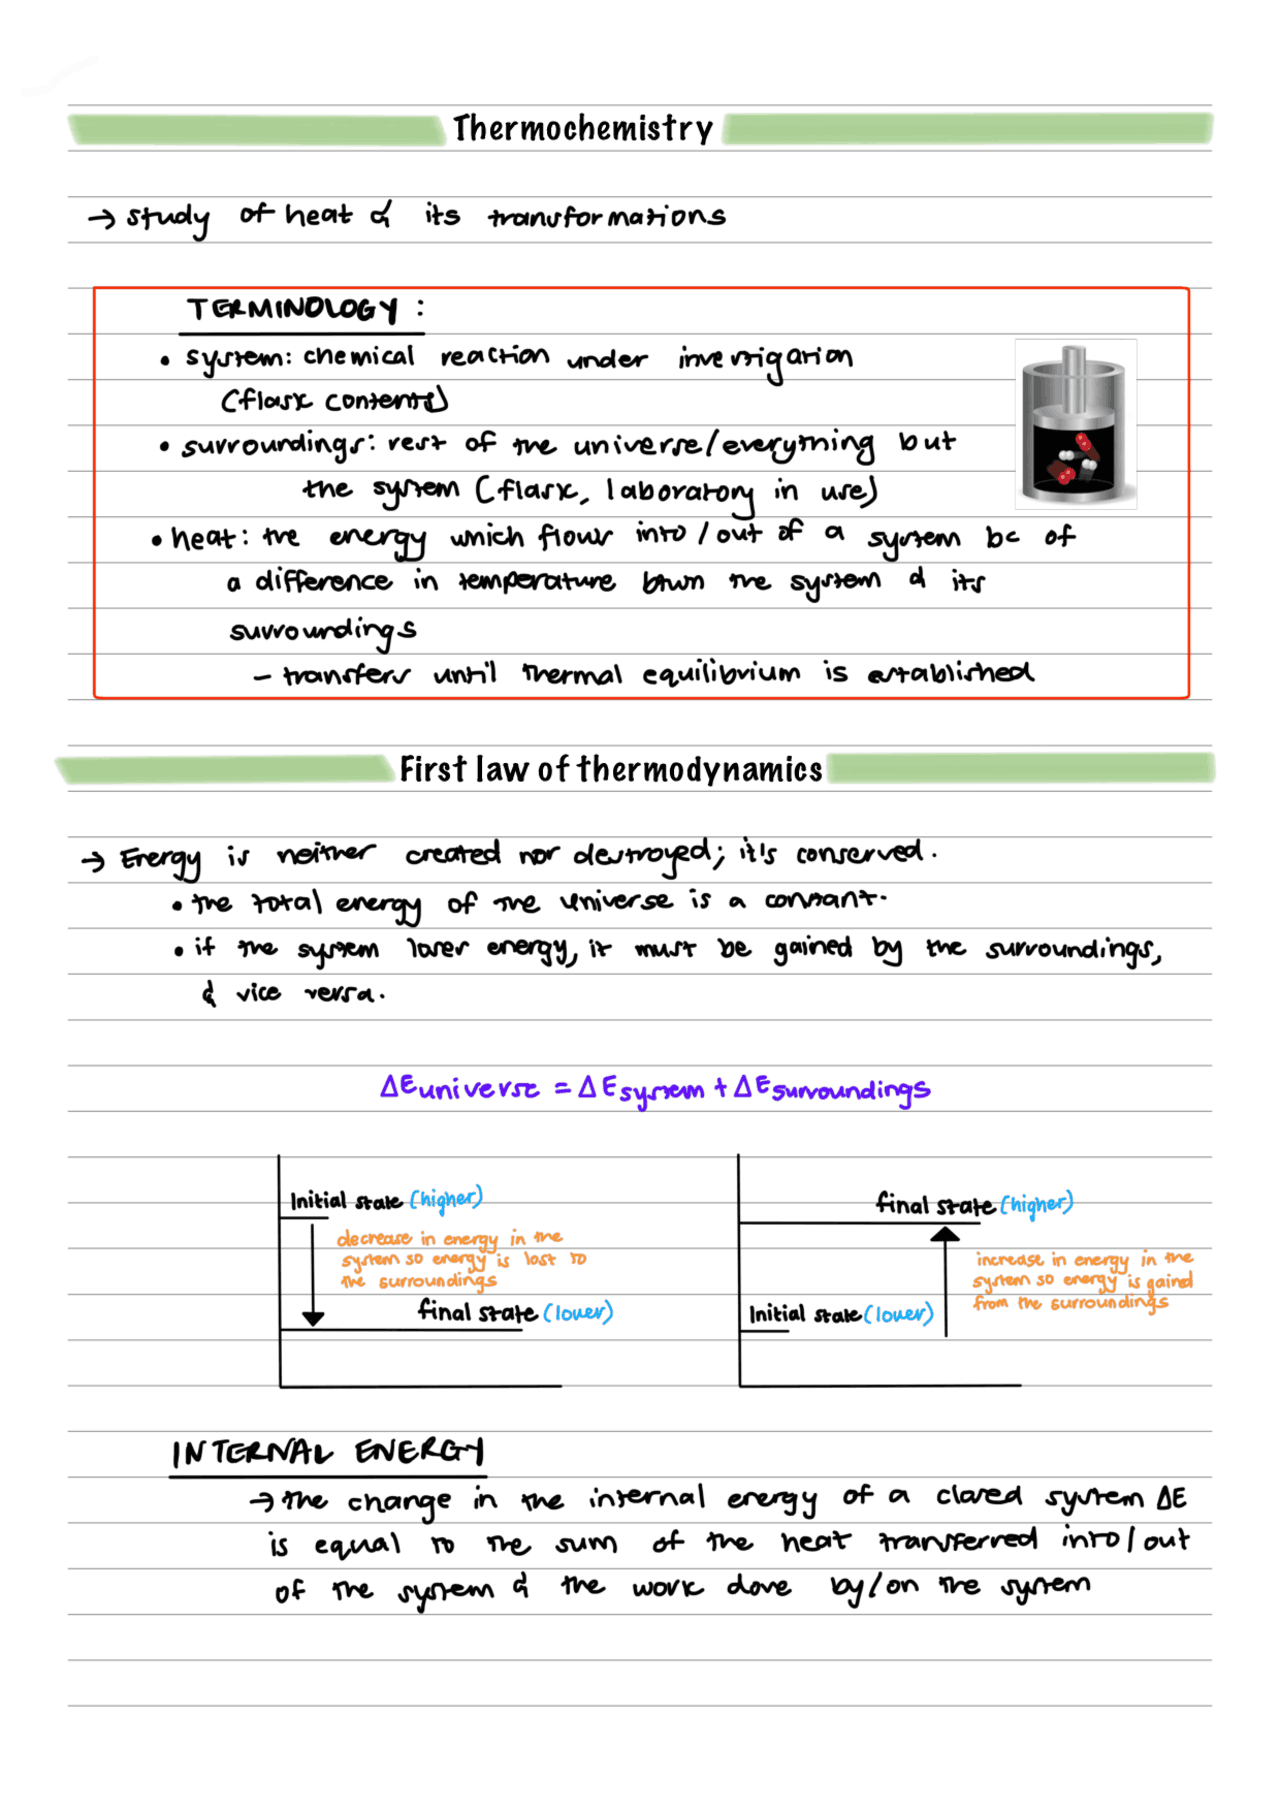 Thermochemistry
→ study of heat & its transformations
TERMINOLOGY:
• system: chemical reaction under investigation
(flask contents)
• surroundings: rest of the universe/everything but
the system (flask, laboratory in use)
• heat: the energy which flows into/out of a system bc of
a difference in temperature btwn the system & its
surroundings
- transfers until thermal equilibrium is established
First law of thermodynamics
→ Energy is neither created nor destroyed; it's conserved.
• the total energy of the universe is a constant.
• if the system loses energy, it must be gained by the surroundings,
& vice versa.
ΔEuniverse = ΔEsystem + ΔEsurroundings
Initial state (higher)
decrease in energy in the
system so energy is lost to
the surroundings
final state (lower)
final state (higher)
increase in energy in the
system so energy is gained
from the surroundings
Initial state (lower)
INTERNAL ENERGY
→ the change in the internal energy of a closed system ΔE
is equal to the sum of the heat transferred into/out
of the system & the work done by/on the system